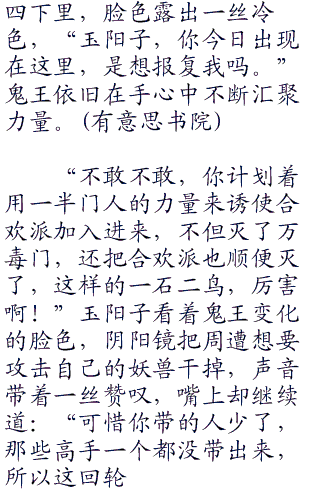 四下里，脸色露出一丝冷
色，“玉阳子，你今日出现
在这里，是想报复我吗。”
鬼王依旧在手心中不断汇聚
力量。(有意思书院)
“不敢不敢，你计划着
用一半门人的力量来诱使合
欢派加入进来，不但灭了万
毒门，还把合欢派也顺便灭
了，这样的一石二鸟，厉害
啊！”玉阳子看着鬼王变化
的脸色，阴阳镜把周遭想要
攻击自己的妖兽干掉，声音
带着一丝赞叹，嘴上却继续
道：“可惜你带的人少了，
那些高手一个都没带出来，
所以这回轮